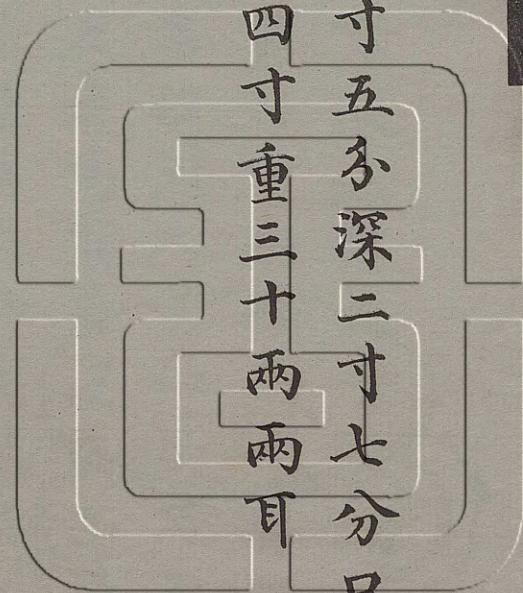 寸五分深二寸七分口
四寸重三十兩兩耳